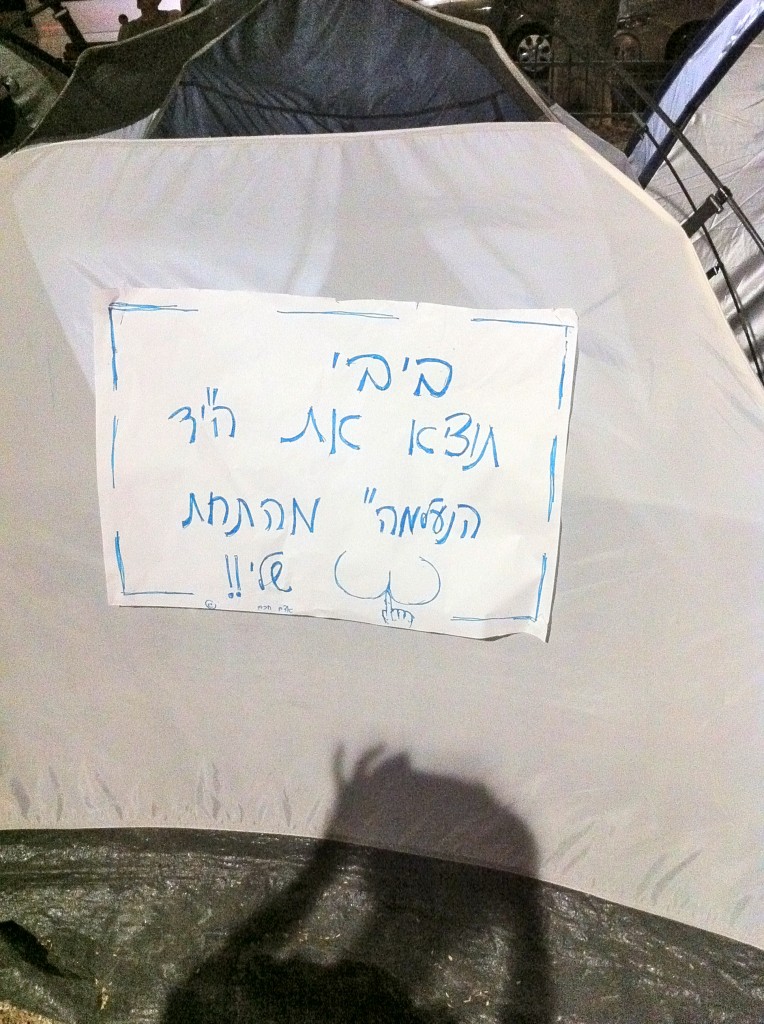 ביבי
תוצא את ה"יד
הנעלמה" מהתחת
שלי!!
©